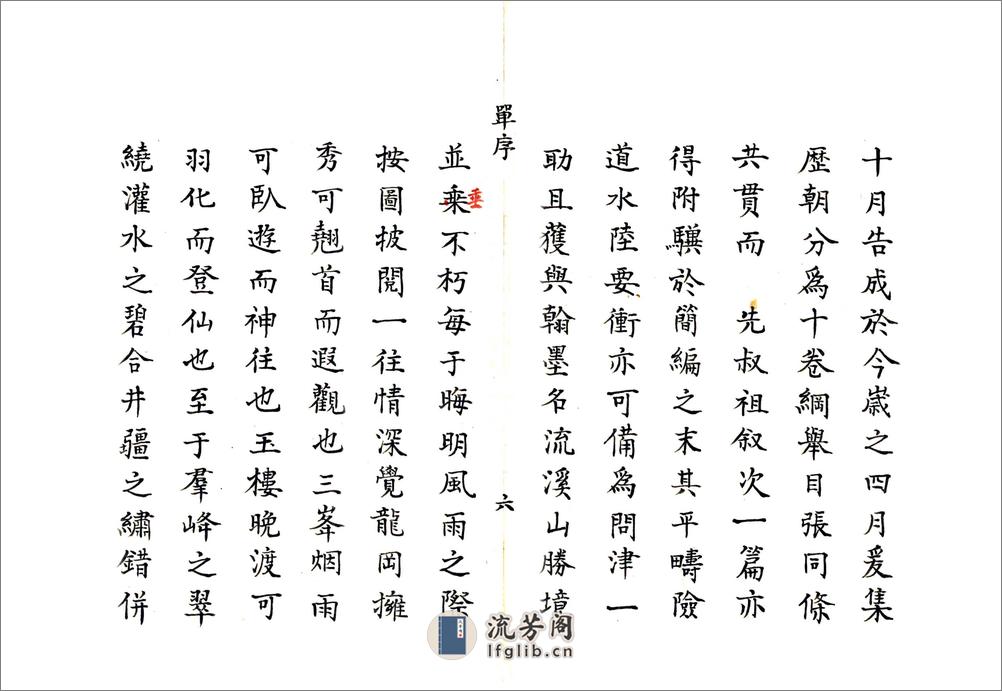 十月告成於今歲之四月爰集
歷朝分爲十卷綱舉目張同條
共貫而　先叔祖叙次一篇亦
得附驥於簡編之末其平疇險
道水陸要衝亦可備爲問津一
助且獲與翰墨名流溪山勝境
單序
六
並乘不朽每于晦明風雨之際
垂
按圖披閱一往情深覺龍岡擁
秀可翹首而遐觀也三峯烟雨
可臥遊而神往也玉樓晚渡可
羽化而登仙也至于羣峰之翠
繞灌水之碧合井疆之繡錯併
流芳阁
lfglib.cn